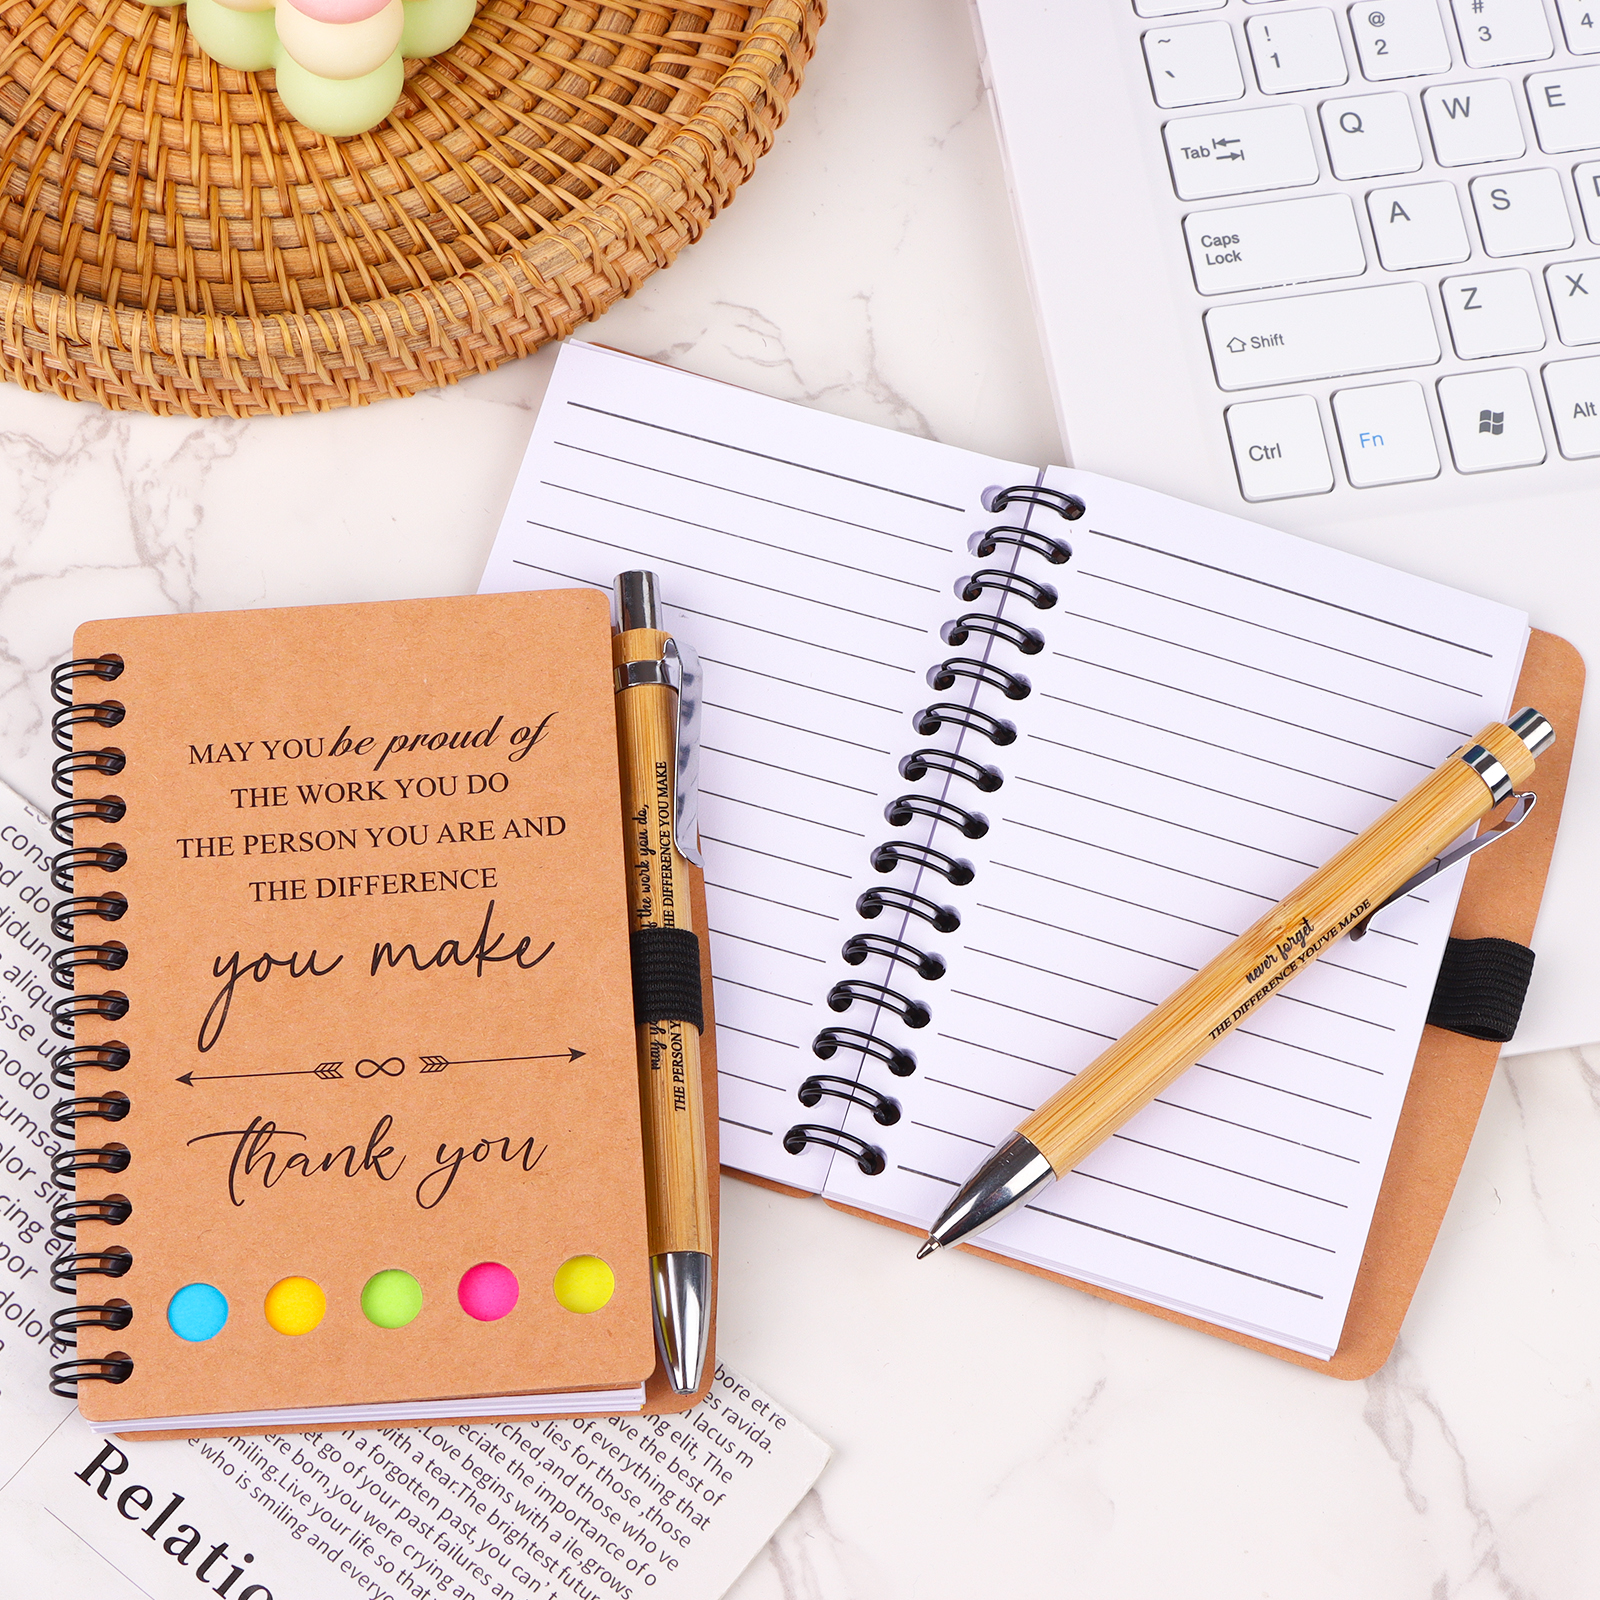 MAY YOU be proud of
THE WORK YOU DO
THE PERSON YOU ARE AND
THE DIFFERENCE
you make
Thank you
f the work you do,
HE DIFFERENCE YOU MAKE
may yo
THE PERSON Y
never forget
THE DIFFERENCE YOU'VE MADE
~
`
!
1
@
2
#
3
4
Tab
Q
W
E
Caps
Lock
A
S
Shift
Z
X
Ctrl
Fn
Alt
Relatio
bore et re
es ravida.
n lacus m
ng elit, The
ave the best of
of everything that
s lies for those ,those
ched,and those who ve
eciate the importance of o
.Love begins with a ile,grows
with a tear.The brightest futur
n a forgotten past, you can't
et go of your past failures an
ere born,you were crying an
miling.Live your life so that
who is smiling and everyo
cons
ed do
didun
aliqu
isse u
modo
umsa
olor sit
cing el
por
dolore
a.